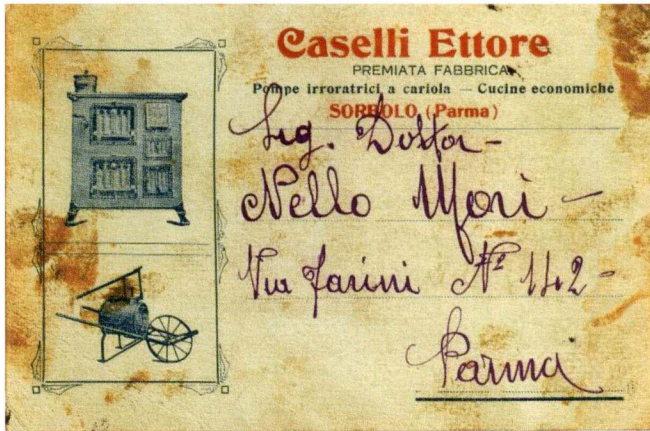 Caselli Ettore
PREMIATA FABBRICA
Pompe irroratrici a cariola — Cucine economiche
SORBOLO, (Parma)
Sig. Dottor -
Nello Mori -
Via Farini Nº 142 -
Parma